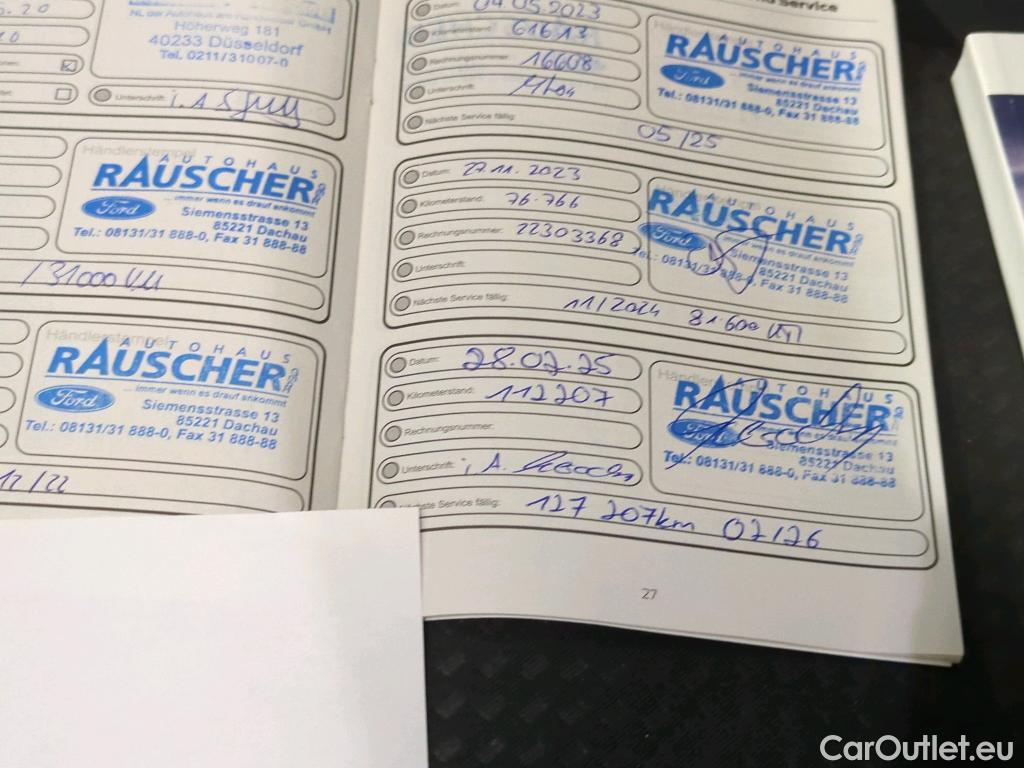 NL der Autohaus am
Höherweg 181
40233 Düsseldorf
Tel. 0211/31007-0
Unterschrift: i.A
Händlerstempel
AUTOHAUS
RAUSCHER GmbH
... immer wenn es drauf ankommt
Ford
Siemensstrasse 13
85221 Dachau
Tel.: 08131/31 888-0, Fax 31 888-88
Händlerstempel
AUTOHAUS
RAUSCHER GmbH
... immer wenn es drauf ankommt
Ford
Siemensstrasse 13
85221 Dachau
Tel.: 08131/31 888-0, Fax 31 888-88
12/22
Service
Datum: 04.05.2023
Kilometerstand: 61613
Rechnungsnummer: 16608
Unterschrift:
Nächste Service fällig: 05/25
AUTOHAUS
RAUSCHER GmbH
... immer wenn es drauf ankommt
Ford
Siemensstrasse 13
85221 Dachau
Tel.: 08131/31 888-0, Fax 31 888-88
Datum: 27.11.2023
Kilometerstand: 76.766
Rechnungsnummer: 22303368
Unterschrift:
Nächste Service fällig: 11/2024
AUTOHAUS
RAUSCHER GmbH
... immer wenn es drauf ankommt
Ford
Siemensstrasse 13
85221 Dachau
Tel.: 08131/31 888-0, Fax 31 888-88
Datum: 28.02.25
Kilometerstand: 112207
Rechnungsnummer:
Unterschrift: i.A.
Nächste Service fällig: 127 207km 02/26
AUTOHAUS
RAUSCHER GmbH
... immer wenn es drauf ankommt
Ford
Siemensstrasse 13
85221 Dachau
Tel.: 08131/31 888-0, Fax 31 888-88
27
CarOutlet.eu